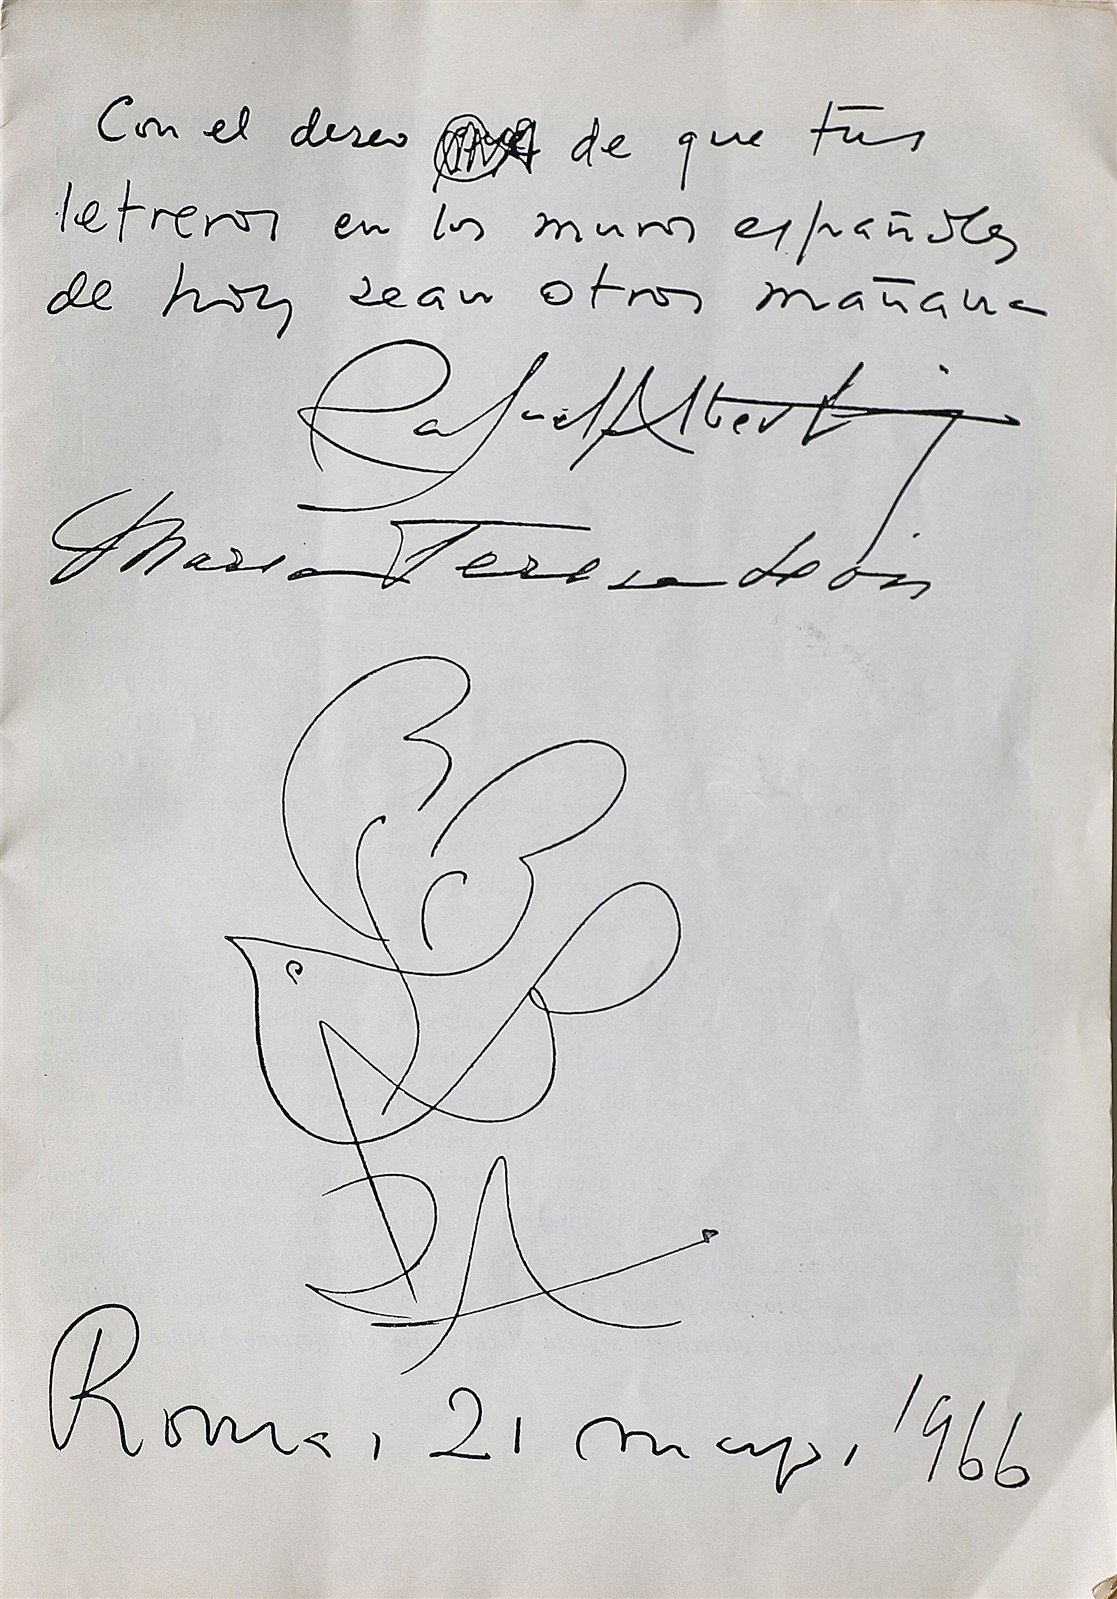 Con el deseo de que tus
letreros en los muros españoles
de hoy sean otros mañana
Rafael Alberti
María Teresa León
RA
Roma, 21 mayo, 1966